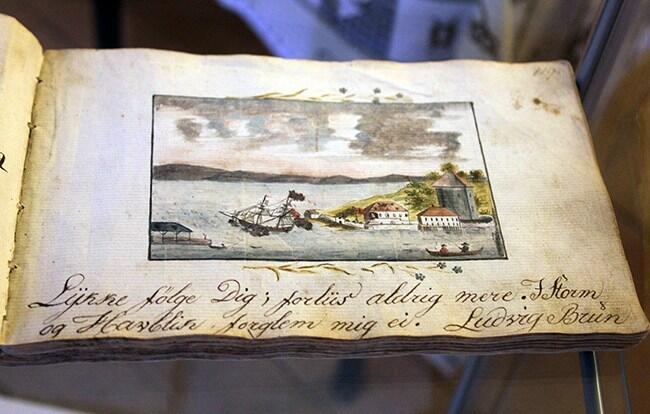 Lykke følge Dig; forliis aldrig mere. I Storm
og Havblik, forglem mig ei. Ludvig Brün